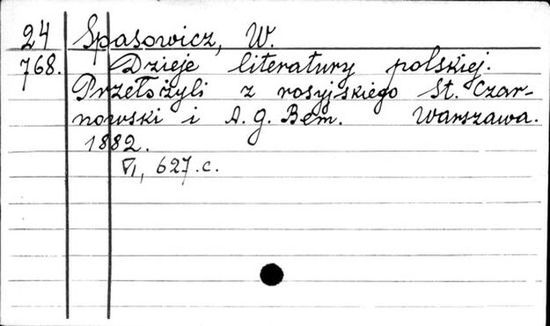 24 Spasowicz, W.
768. Dzieje literatury polskiej.
Przełożyli z rosyjskiego St. Czar-
nowski i A. G. Bem. Warszawa.
1882.
VI, 627.c.